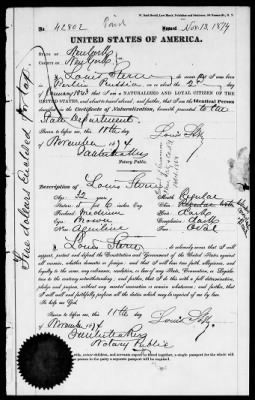 No. 42802 Paid Issued Nov. 13. 1874
UNITED STATES OF AMERICA.
STATE OF New York
COUNTY OF New York
I, Louis Stern do swear that I was born in
Berlin Prussia on the 2
January 1842 that I am a NATURALIZED AND LOYAL CITIZEN OF THE
UNITED STATES, and about to travel abroad, and further, that I am the Identical Person
described in the Certificate of Naturalization, herewith presented to the
State Department
Sworn to before me, this 11th day
of November 1874
Notary Public.
Five dollars Enclosed
Description of Louis Stern
Age: 32 years
Stature: 5 feet inches, Eng.
Forehead: Medium
Eyes: Brown
Nose: Aquiline
Mouth: Regular
Chin:
Hair: Dark
Complexion: Dark
Face: Oval
I, Louis Stern do solemnly swear that I will
support, protect and defend the Constitution and Government of the United States against
all enemies, whether domestic or foreign; and that I will bear true faith, allegiance, and
loyalty to the same, any ordinance, resolution, or law of any State, Convention, or Legisla-
ture to the contrary notwithstanding; and further, that I do this with a full determination,
pledge and purpose, without any mental reservation or evasion whatsoever; and further, that
I will well and faithfully perform all the duties which may be required of me by law.
So help me God.
Sworn to before me, this 11th day
of November 1874
Notary Public